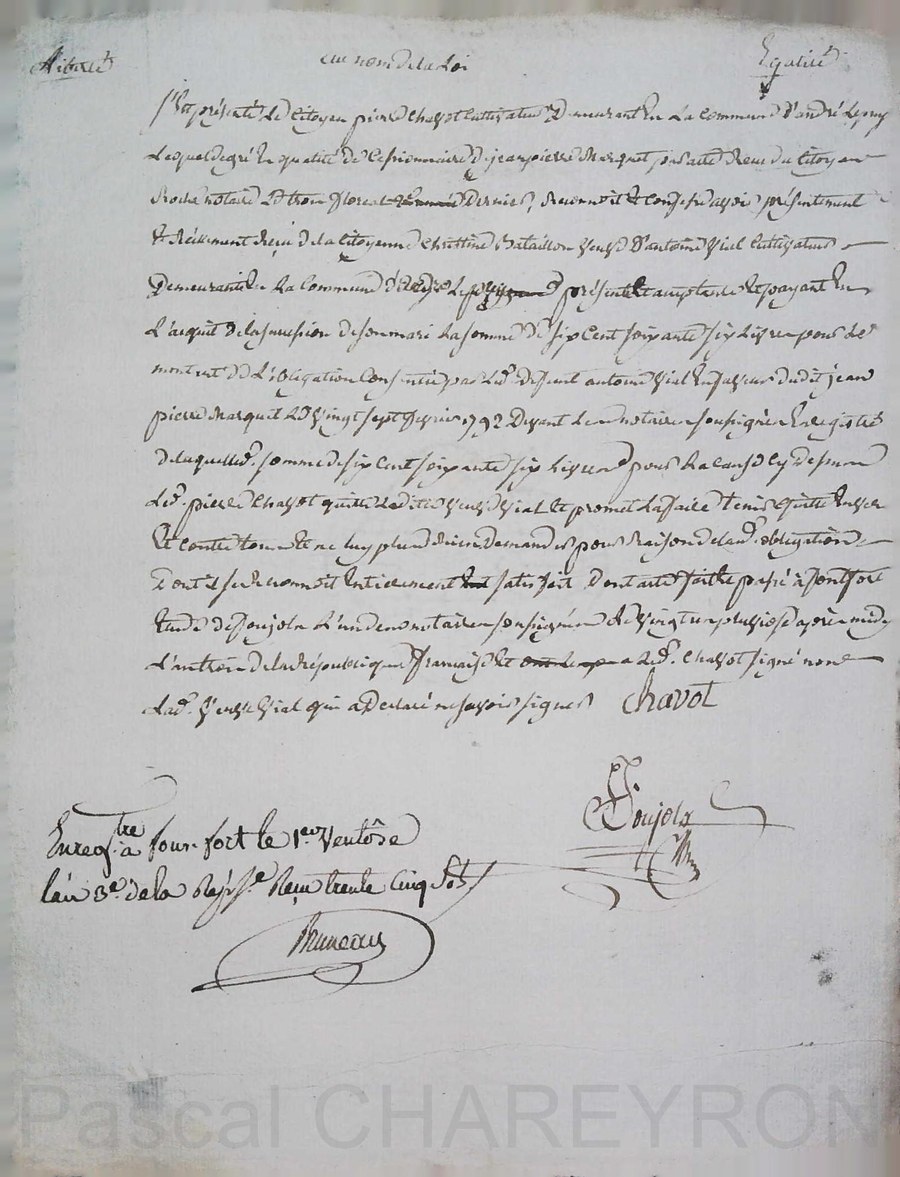 Liberté au nom de la Loi Egalité
S'est présenté Le Citoyen pierre Chavot Cultivateur Demeurant En La Commune d'andré Lepuy
Lequel degré En qualité de Cessionnaire de jeanpierre Marquet par acte Recu du Citoyen
Roche notaire Le trois floreal Dernier, Reconnoit Et Confesse avoir présentement
Et Réellement Reçu de la Citoyenne Christine Bataillon Veuve D'antoine Vial Cultivateur
Demeurante En La Commune d'andré Lepuy présente acceptante Et payant En
L'acquit de la succession de son mari La somme de six Cent soixante six Livres pour Le
montant de L'obligation Consentie par Led. defunt antoine Vial En faveur dudit jean
pierre Marquet Le Vingt sept fevrier 1792 Devant Le notaire soussigné Enregistré
de laquelle somme de six Cent soixante six Livres pour La Cause Cy dessus
Led. pierre Chavot quitte Ladite Veuve Vial Et promet La faire tenir quitte Envers
Et Contre tous Et ne luy plus Rien Demander pour Raison de lad. obligation
Dont il se Reconnoit Entierement satisfait Dont acte fait Et passé à Montfort
Etude de Poujols L'un des notaires soussignés Le Vingt un pluviose après midy
L'an trois de la République française Et a Led. Chavot signé non
Lad. Veuve Vial qui a Declaré ne savoir signer Chavot
Poujols
Enregtre a font-fort le 1er Ventôse
l'an 3e de la Repe Reçu trente Cinq Sols
Bruneau
Pascal CHAREYRON